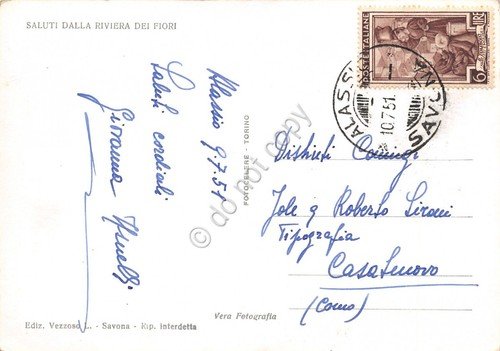 SALUTI DALLA RIVIERA DEI FIORI
Alassio 9.7.51
Saluti cordiali
Giovanna
FOTOCELERE - TORINO
POSTE ITALIANE
LIRE
6
ALASSIO
10.7.51
SAVONA
Distinti Coniugi
Jole e Roberto Sironi
Tipografia
Casatenovo
(Como)
do not copy
Vera Fotografia
Ediz. Vezzoso L. - Savona - Rip. interdetta